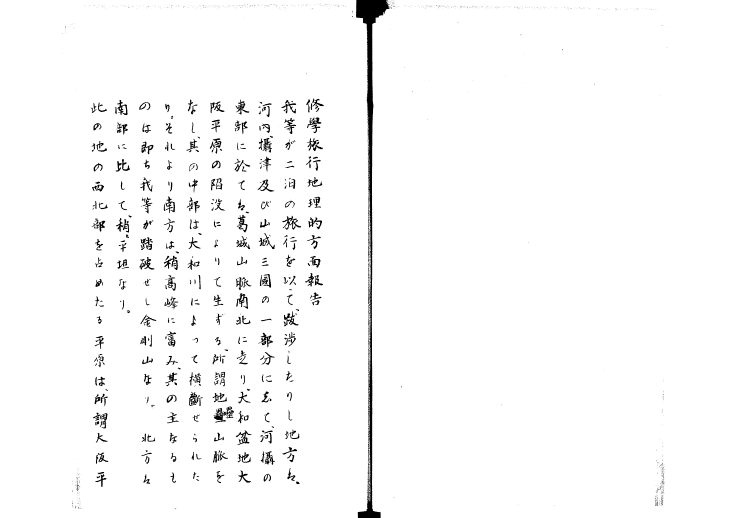 修學旅行地理的方面報告
我等が二泊の旅行を以て、跋渉したりし地方は、
河内、攝津及び山城三國の一部分にして、河攝の
東部に於ては、葛城山脈南北に走り、大和盆地大
阪平原の陥没によりて生ずる、所謂地壘山脈を
なし、其の中部は、大和川によつて横斷せられた
り。それより南方は、稍高峰に富み、其の主なるも
のは即ち我等が踏破せし金剛山なり。北方は
南部に比して、稍平坦なり。
此の地の西北部を占めたる平原は、所謂大阪平